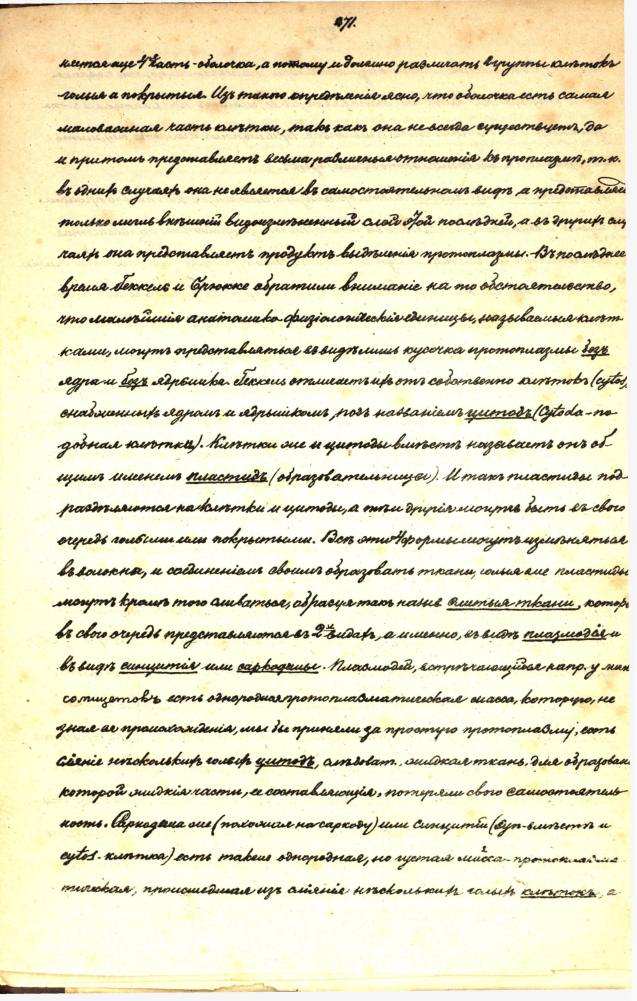 271.
няется еще 4ая часть - оболочка, а потому и должно различать в группы клѣтокъ
голыя и покрытыя. Изъ такого опредѣленія ясно, что оболочка есть самая
маловажная часть клѣтки, такъ какъ она не всегда существуетъ, да
и притомъ представляетъ весьма различныя отношенія къ протоплазмѣ, т. к.
въ однихъ случаяхъ она не является въ самостоятельномъ видѣ, а представляетъ
только лишь внѣшній видоизмѣненный слой этой послѣдней, а въ другихъ слу
чаяхъ она представляетъ продуктъ выдѣленія протоплазмы. Въ послѣднее
время Геккель и Брюкке обратили вниманіе на то обстоятельство,
что малѣйшія анатомико-физіологическія единицы, называемыя клѣт
ками, могутъ представляться въ видѣ лишь кусочка протоплазмы безъ
ядра и безъ ядрышка. Геккель отличаетъ ихъ отъ собственно клѣтокъ (cytos),
снабженныхъ ядромъ и ядрышкомъ, подъ названіемъ цитодъ (Cytoda - по
добная клѣткѣ). Клѣтки же и цитоды вмѣстѣ называетъ онъ об
щимъ именемъ пластидъ (образовательницы). И такъ пластиды под
раздѣляются на клѣтки и цитоды, а тѣ и другія могутъ быть въ свою
очередь голыми или покрытыми. Всѣ эти 4 формы могутъ измѣняться
въ волокна, и соединеніемъ своимъ образовать ткани, голыя же пластиды
могутъ кромѣ того сливаться, образуя такъ назыв слитыя ткани, которы
въ свою очередь представляются въ 2хъ видахъ, а именно, въ видѣ плазмодіи и
въ видѣ синцитіи или саркодины. Плазмодій, встрѣчающійся напр. у мик
сомицетовъ есть однородная протоплазматическая масса, которую, не
зная ея происхожденія, мы бы приняли за простую протоплазму, есть
сліяніе нѣсколькихъ голыхъ цитодъ, слѣдоват. жидкая ткань, для образован
которой жидкія части, ее составляющія, потеряли свою самостоятель
ность. Саркодина же (похожая на саркоду) или синцитій (Syn - вмѣстѣ и
cytos - клѣтка) есть также однородная, но густая масса - протоплазма
тическая, происшедшая изъ сліянія нѣсколькихъ голыхъ клѣтокъ, а